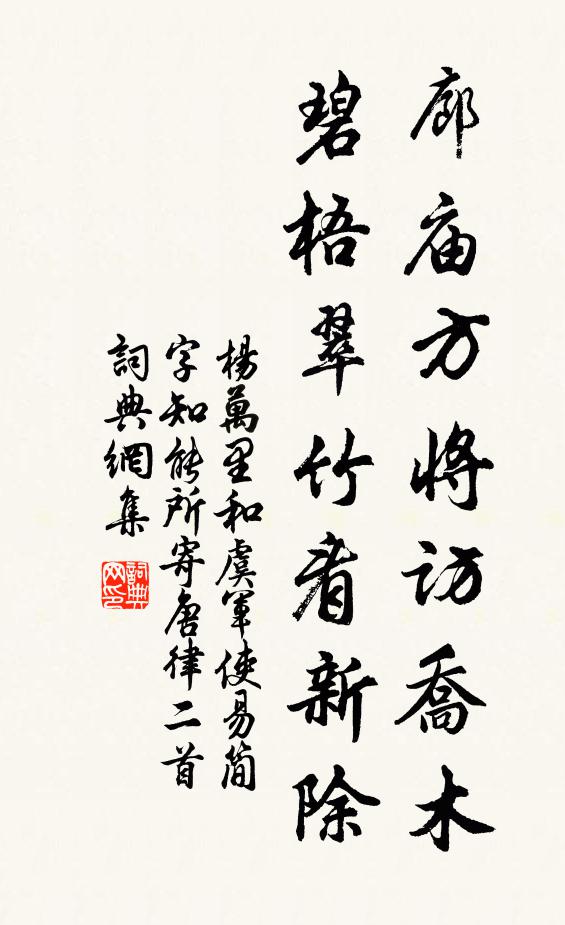 廊庙方將訪喬木
碧梧翠竹看新除
楊萬里和虞軍使易簡
字知能所寄唐律二首
詞典網集
詞典
网印